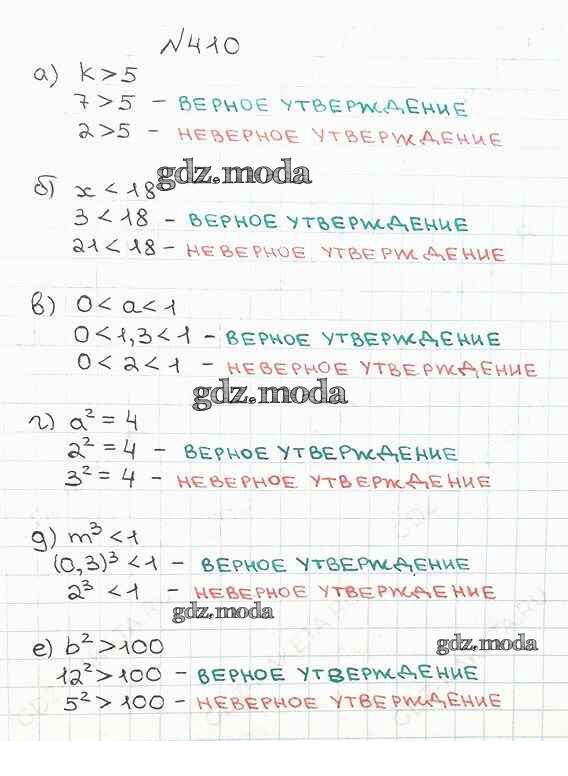 №410
а) k > 5
7 > 5 – ВЕРНОЕ УТВЕРЖДЕНИЕ
2 > 5 – НЕВЕРНОЕ УТВЕРЖДЕНИЕ
gdz.moda
б) x < 18
3 < 18 – ВЕРНОЕ УТВЕРЖДЕНИЕ
21 < 18 – НЕВЕРНОЕ УТВЕРЖДЕНИЕ
в) 0 < a < 1
0 < 1,3 < 1 – ВЕРНОЕ УТВЕРЖДЕНИЕ
0 < 2 < 1 – НЕВЕРНОЕ УТВЕРЖДЕНИЕ
gdz.moda
г) a² = 4
2² = 4 – ВЕРНОЕ УТВЕРЖДЕНИЕ
3² = 4 – НЕВЕРНОЕ УТВЕРЖДЕНИЕ
д) m³ < 1
(0,3)³ < 1 – ВЕРНОЕ УТВЕРЖДЕНИЕ
2³ < 1 – НЕВЕРНОЕ УТВЕРЖДЕНИЕ
gdz.moda
е) b² > 100
gdz.moda
12² > 100 – ВЕРНОЕ УТВЕРЖДЕНИЕ
5² > 100 – НЕВЕРНОЕ УТВЕРЖДЕНИЕ